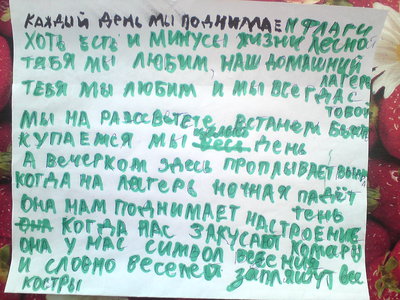 КАЖДЫЙ ДЕНЬ МЫ ПОДНИМАЕМ ФЛАГИ
ХОТЬ ЕСТЬ И МИНУСЫ ЖИЗНИ ЛЕСНО
ТЯБЯ МЫ ЛЮБИМ НАШ ДОМАШНИЙ
ЛАГЕРЬ
ТЕБЯ МЫ ЛЮБИМ И МЫ ВСЕГДА С
ТОБОЙ
МЫ НА РАССВЕТЕ ВСТАНЕМ
КУПАЕМСЯ МЫ ЦЕЛЫЙ ДЕНЬ
А ВЕЧЕРКОМ ЗДЕСЬ ПРОПЛЫВАЕТ
КОГДА НА ЛАГЕРЬ НОЧНАЯ ПАДЁТ
ТЕНЬ
ОНА НАМ ПОДНИМАЕТ НАСТРОЕНИЕ
ОНА КОГДА НАС ЗАКУСАЮТ КОМАРЫ
ОНА У НАС СИМВОЛ ВЕЗЕНИЯ
И СЛОВНО ВЕСЕЛЕЙ ЗАПЛЯШУТ ВСЕ
КОСТРЫ